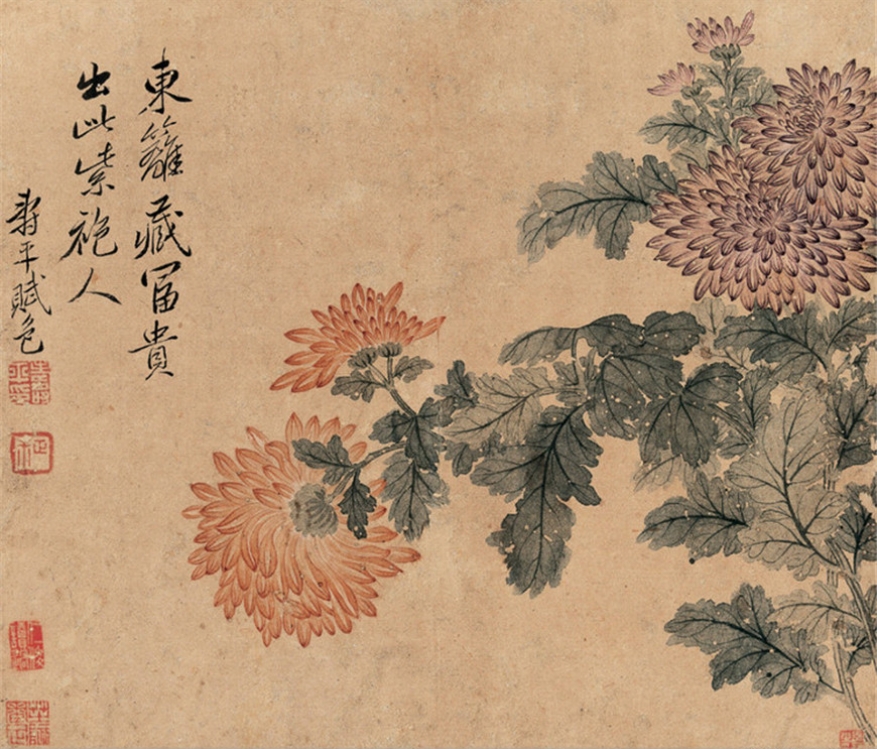 東籬藏富貴
出此紫袍人
壽平賦色